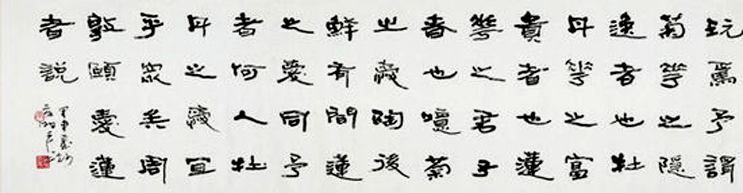 玩焉予謂
菊華之隱
逸者也牡
丹華之富
貴者也蓮
華之君子
者也噫菊
之愛陶後
鮮有聞蓮
之愛同予
者何人牡
丹之愛宜
乎眾矣周
敦頤愛蓮
者說